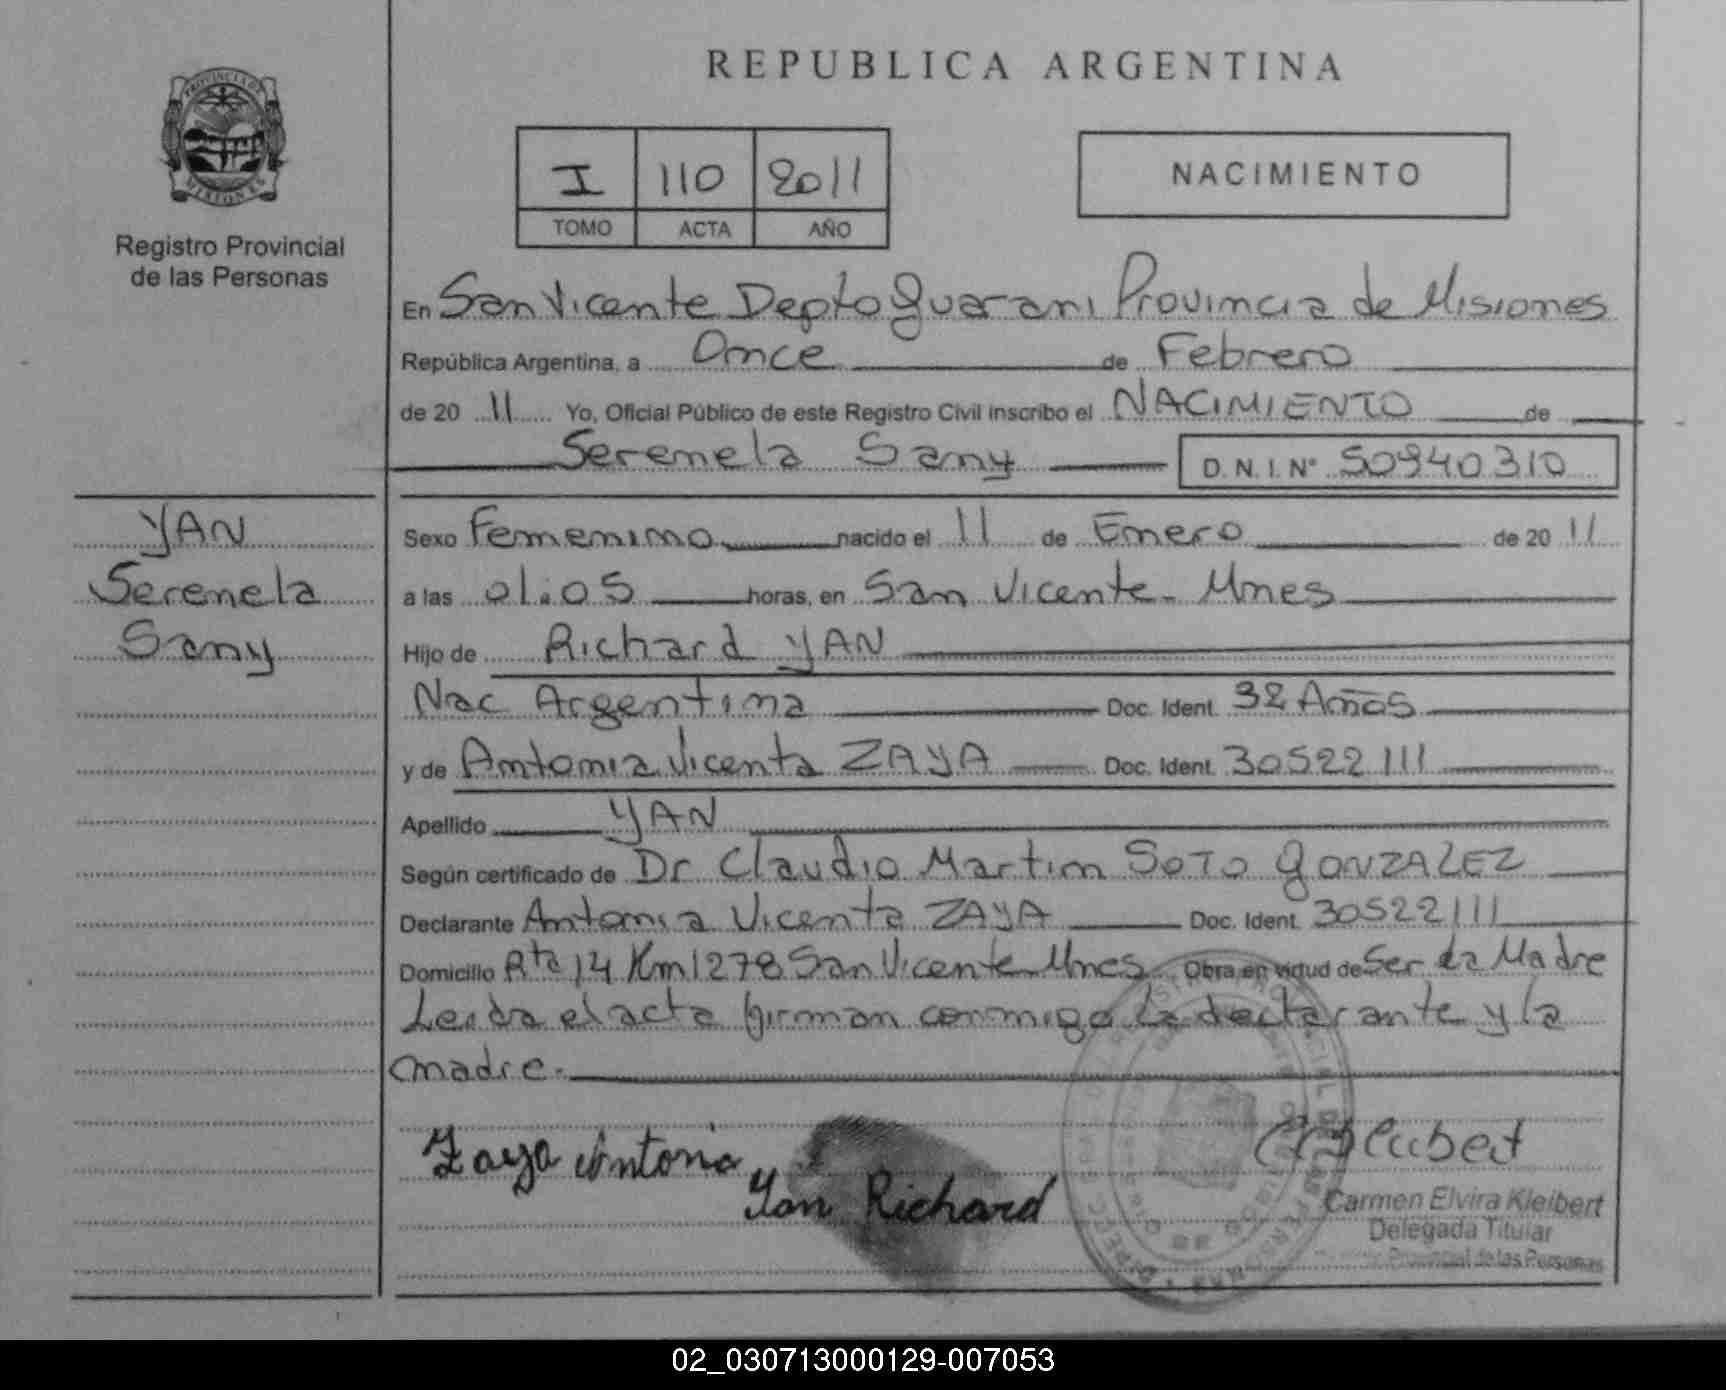 REPUBLICA ARGENTINA
PROVINCIA DE
MISIONES
Registro Provincial
de las Personas
I 110 2011
TOMO ACTA AÑO
NACIMIENTO
En San Vicente Depto Guarani Provincia de Misiones
República Argentina, a Once de Febrero
de 20 11 Yo, Oficial Público de este Registro Civil inscribo el NACIMIENTO de
Serenela Sany D.N.I. Nº 50940310
YAN
Serenela
Sany
Sexo Femenino nacido el 11 de Enero de 20 11
a las 01:05 horas, en San Vicente - Mnes
Hijo de Richard YAN
Nac Argentina Doc. Ident. 32 Años
y de Antonia Vicenta ZAYA Doc. Ident. 30522111
Apellido YAN
Según certificado de Dr Claudio Martin SOTO GONZALEZ
Declarante Antonia Vicenta ZAYA Doc. Ident. 30522111
Domicilio Rta 14 Km 1278 San Vicente - Mnes Obra en virtud de Ser la Madre
Leida el acta firman conmigo la declarante y la
madre.-
Zaya Antonia
Yan Richard
Carmen Elvira Kleibert
Delegada Titular
Provincial de las Personas
02_030713000129-007053